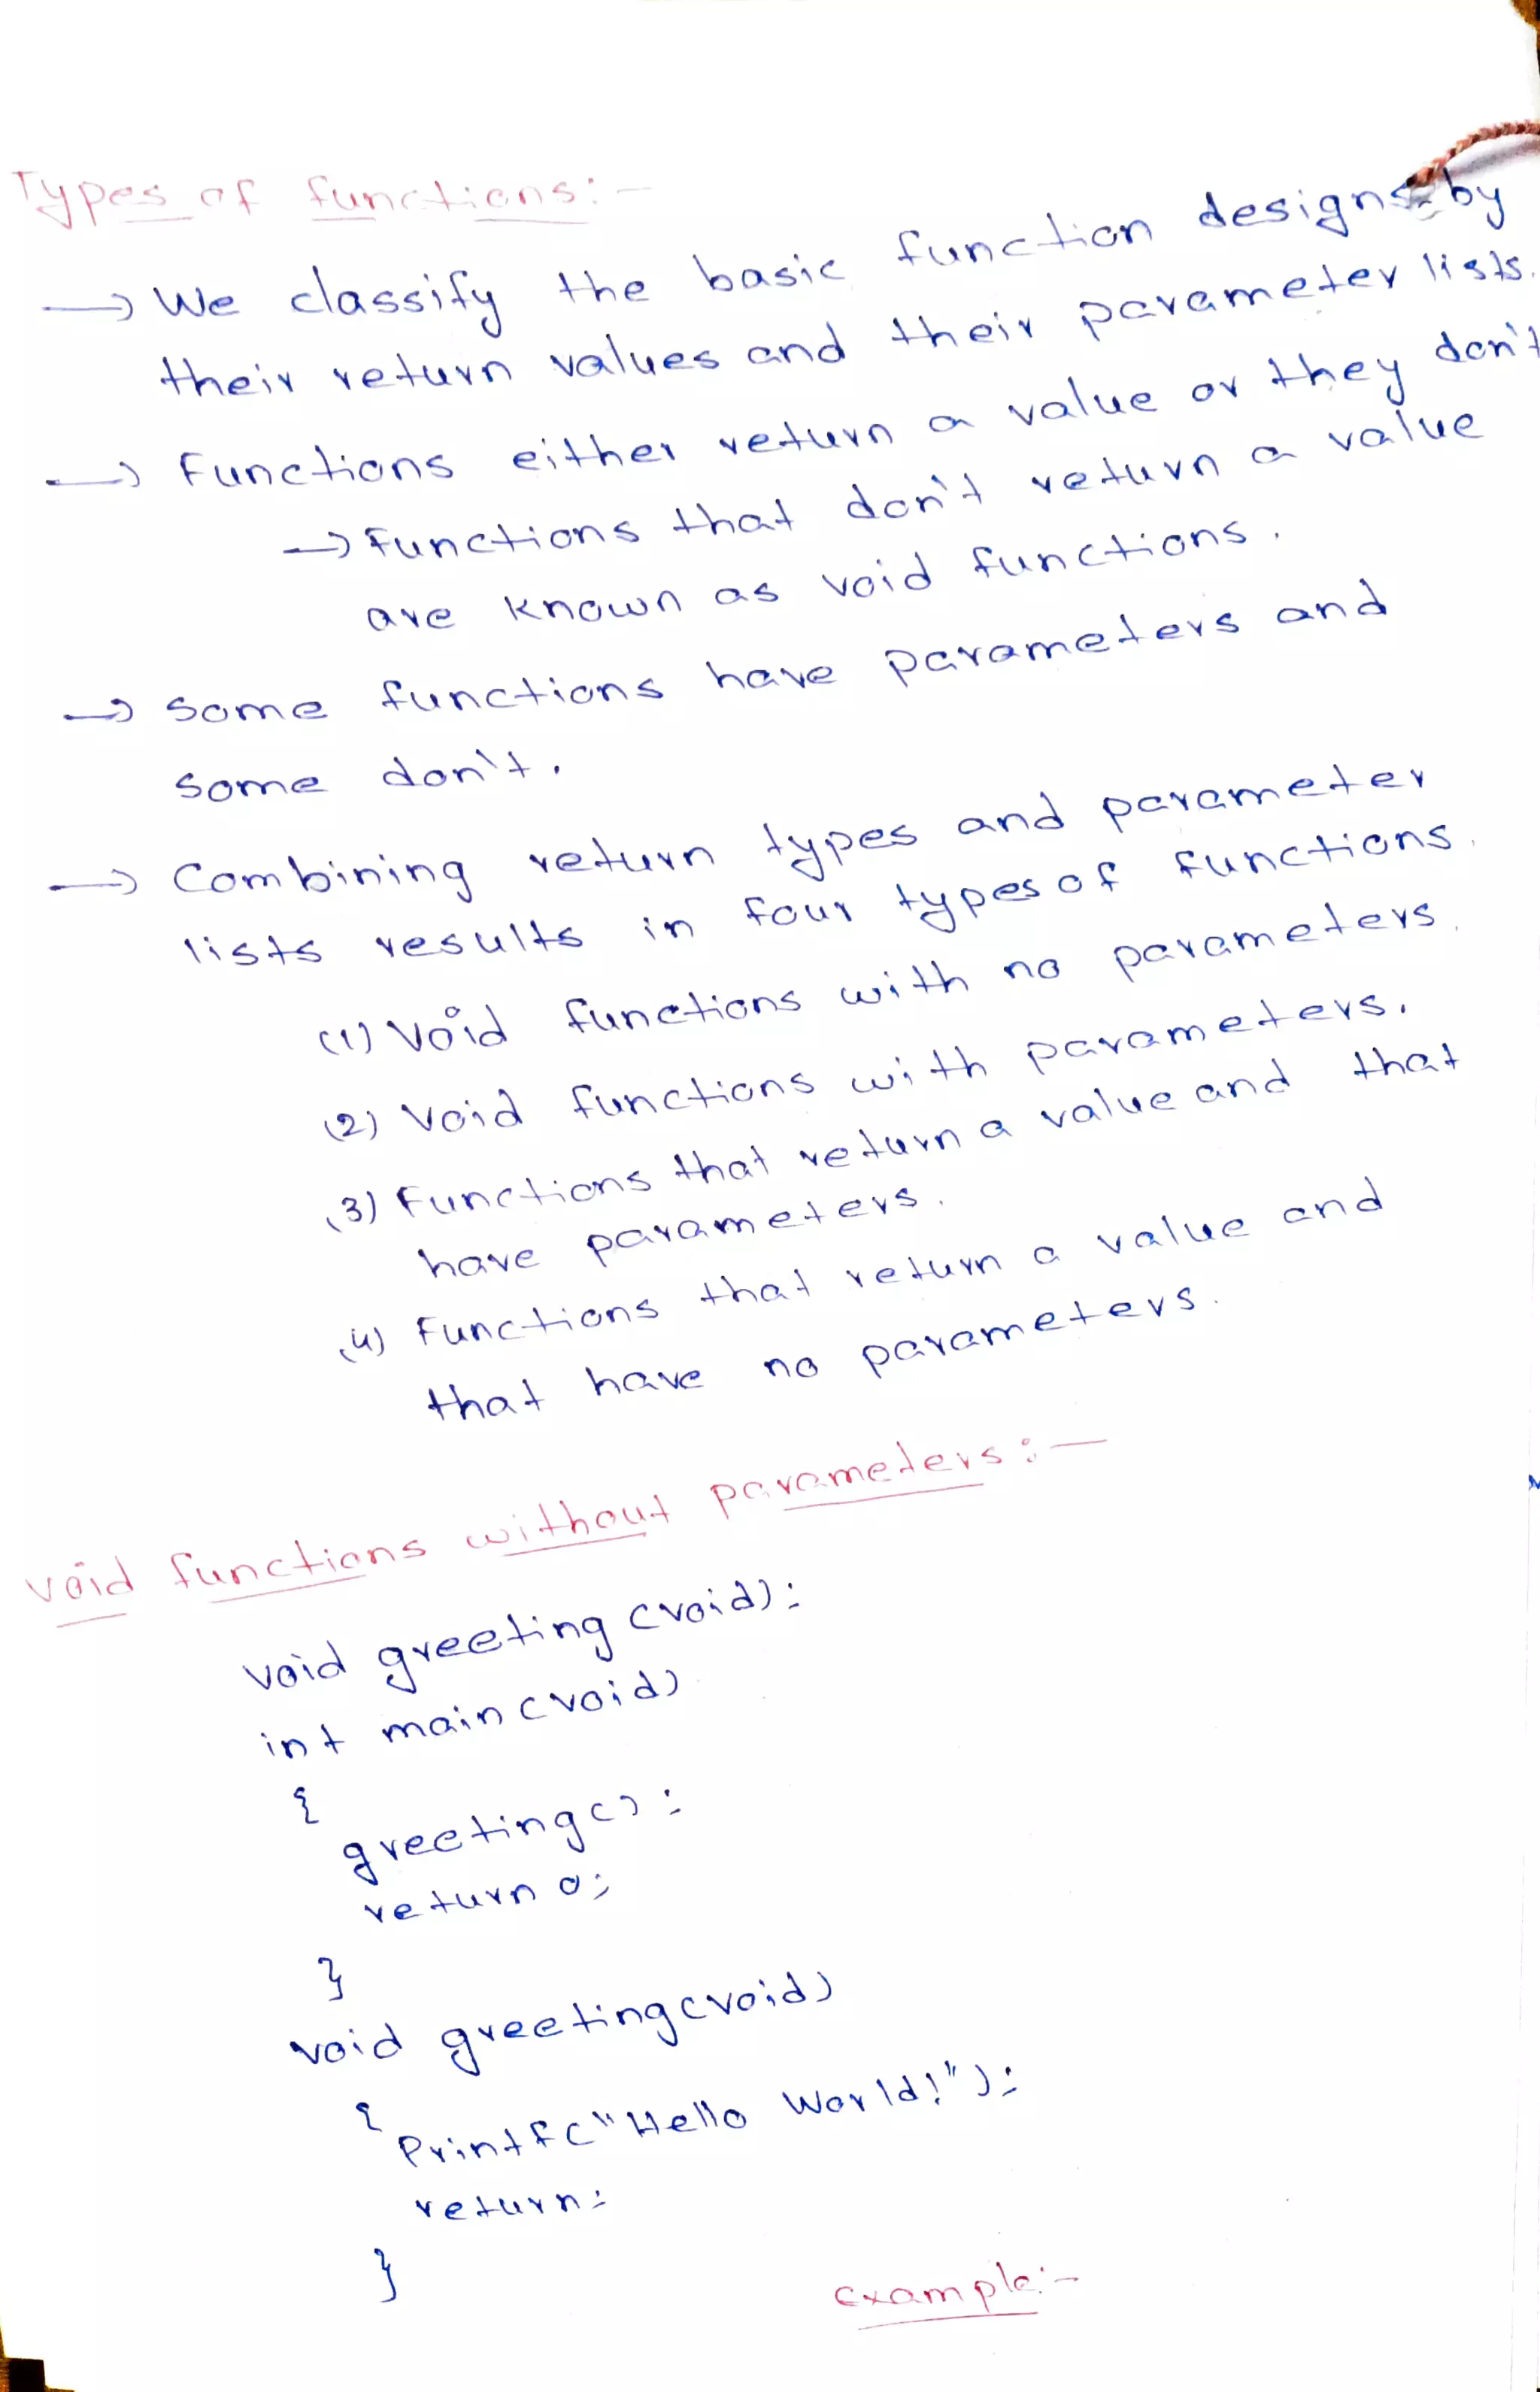 Types of functions:-
→ We classify the basic function designs by
their return values and their parameter lists.
→ Functions either return a value or they don't
→ Functions that don't return a value
are known as void functions.
→ Some functions have parameters and
some don't.
→ Combining return types and parameter
lists results in four types of functions.
(1) Void functions with no parameters.
(2) Void functions with parameters.
(3) Functions that return a value and that
have parameters.
(4) Functions that return a value and
that have no parameters.
void functions without parameters:-
void greeting (void);
int main (void)
{
greeting();
return 0;
}
void greeting(void)
{
Printf("Hello World!");
return;
}
Example:-